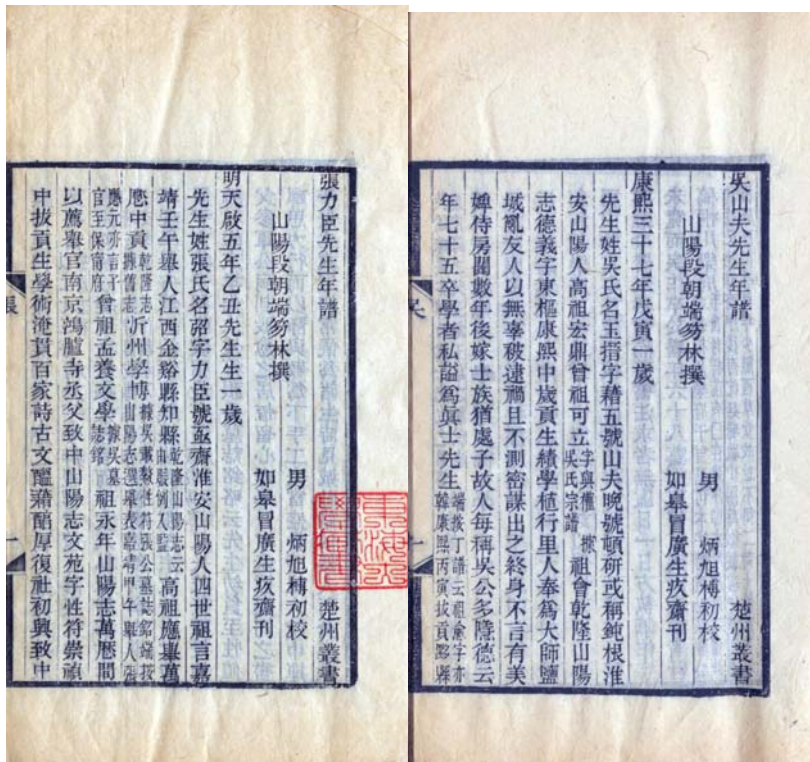 吳山夫先生年譜　楚州叢書
山陽段朝端笏林撰　男　炳旭榑初校
如皋冒廣生疚齋刊
康熙三十七年戊寅一歲
先生姓吳氏名玉搢字藉五號山夫晚號頓研或稱鈍根淮
安山陽人高祖宏鼎曾祖可立字與權據吳氏宗譜祖會乾隆山陽
志德義字東樞康熙中歲貢生績學植行里人奉爲大師鹽
城亂友人以無辜破逮禍且不測密謀出之終身不言有美
婢侍房闥數年後嫁士族猶處子故人每稱吳公多隱德云
年七十五卒學者私諡爲眞士先生端按丁譜云祖會字亦韓康熙丙寅拔貢黟縣
吳
一
張力臣先生年譜　楚州叢書
山陽段朝端笏林撰　男　炳旭榑初校
如皋冒廣生疚齋刊
明天啟五年乙丑先生生一歲
先生姓張氏名弨字力臣號亟齋淮安山陽人四世祖言嘉
靖壬午舉人江西金谿縣知縣乾隆山陽志云由監例入監高祖應舉萬
應中貢乾隆志縣舊志沂州學博據吳𩅾性符張公墓誌銘端按山陽志選舉表嘉靖甲午舉人張
應元亦言子官至保甯府曾祖孟養文學據吳墓誌銘祖永年山陽志萬曆間
以薦舉官南京鴻臚寺丞父致中山陽志文苑字性符崇禎
中拔貢生學術淹貫百家詩古文醞藉醇厚復社初興致中
張
一